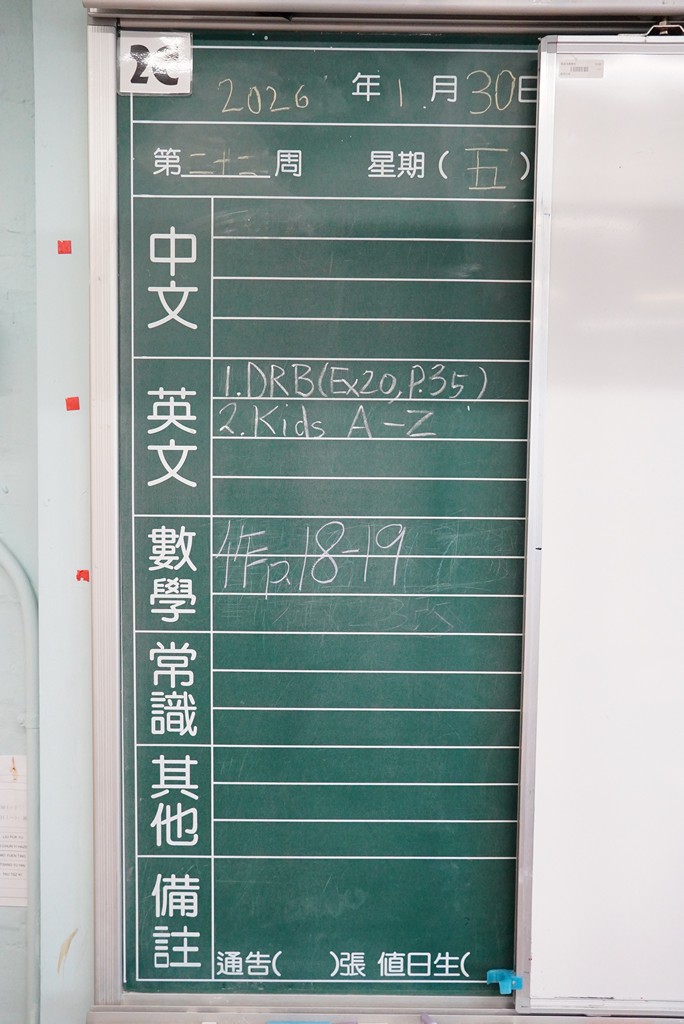 2C
2026 年 1 月 30 日
第 二十二 周 星期 ( 五 )
中文
英文
1. DRB (Ex20, P.35)
2. Kids A-Z
數學
作 p.18-19
常識
其他
備註
通告( )張 值日生(